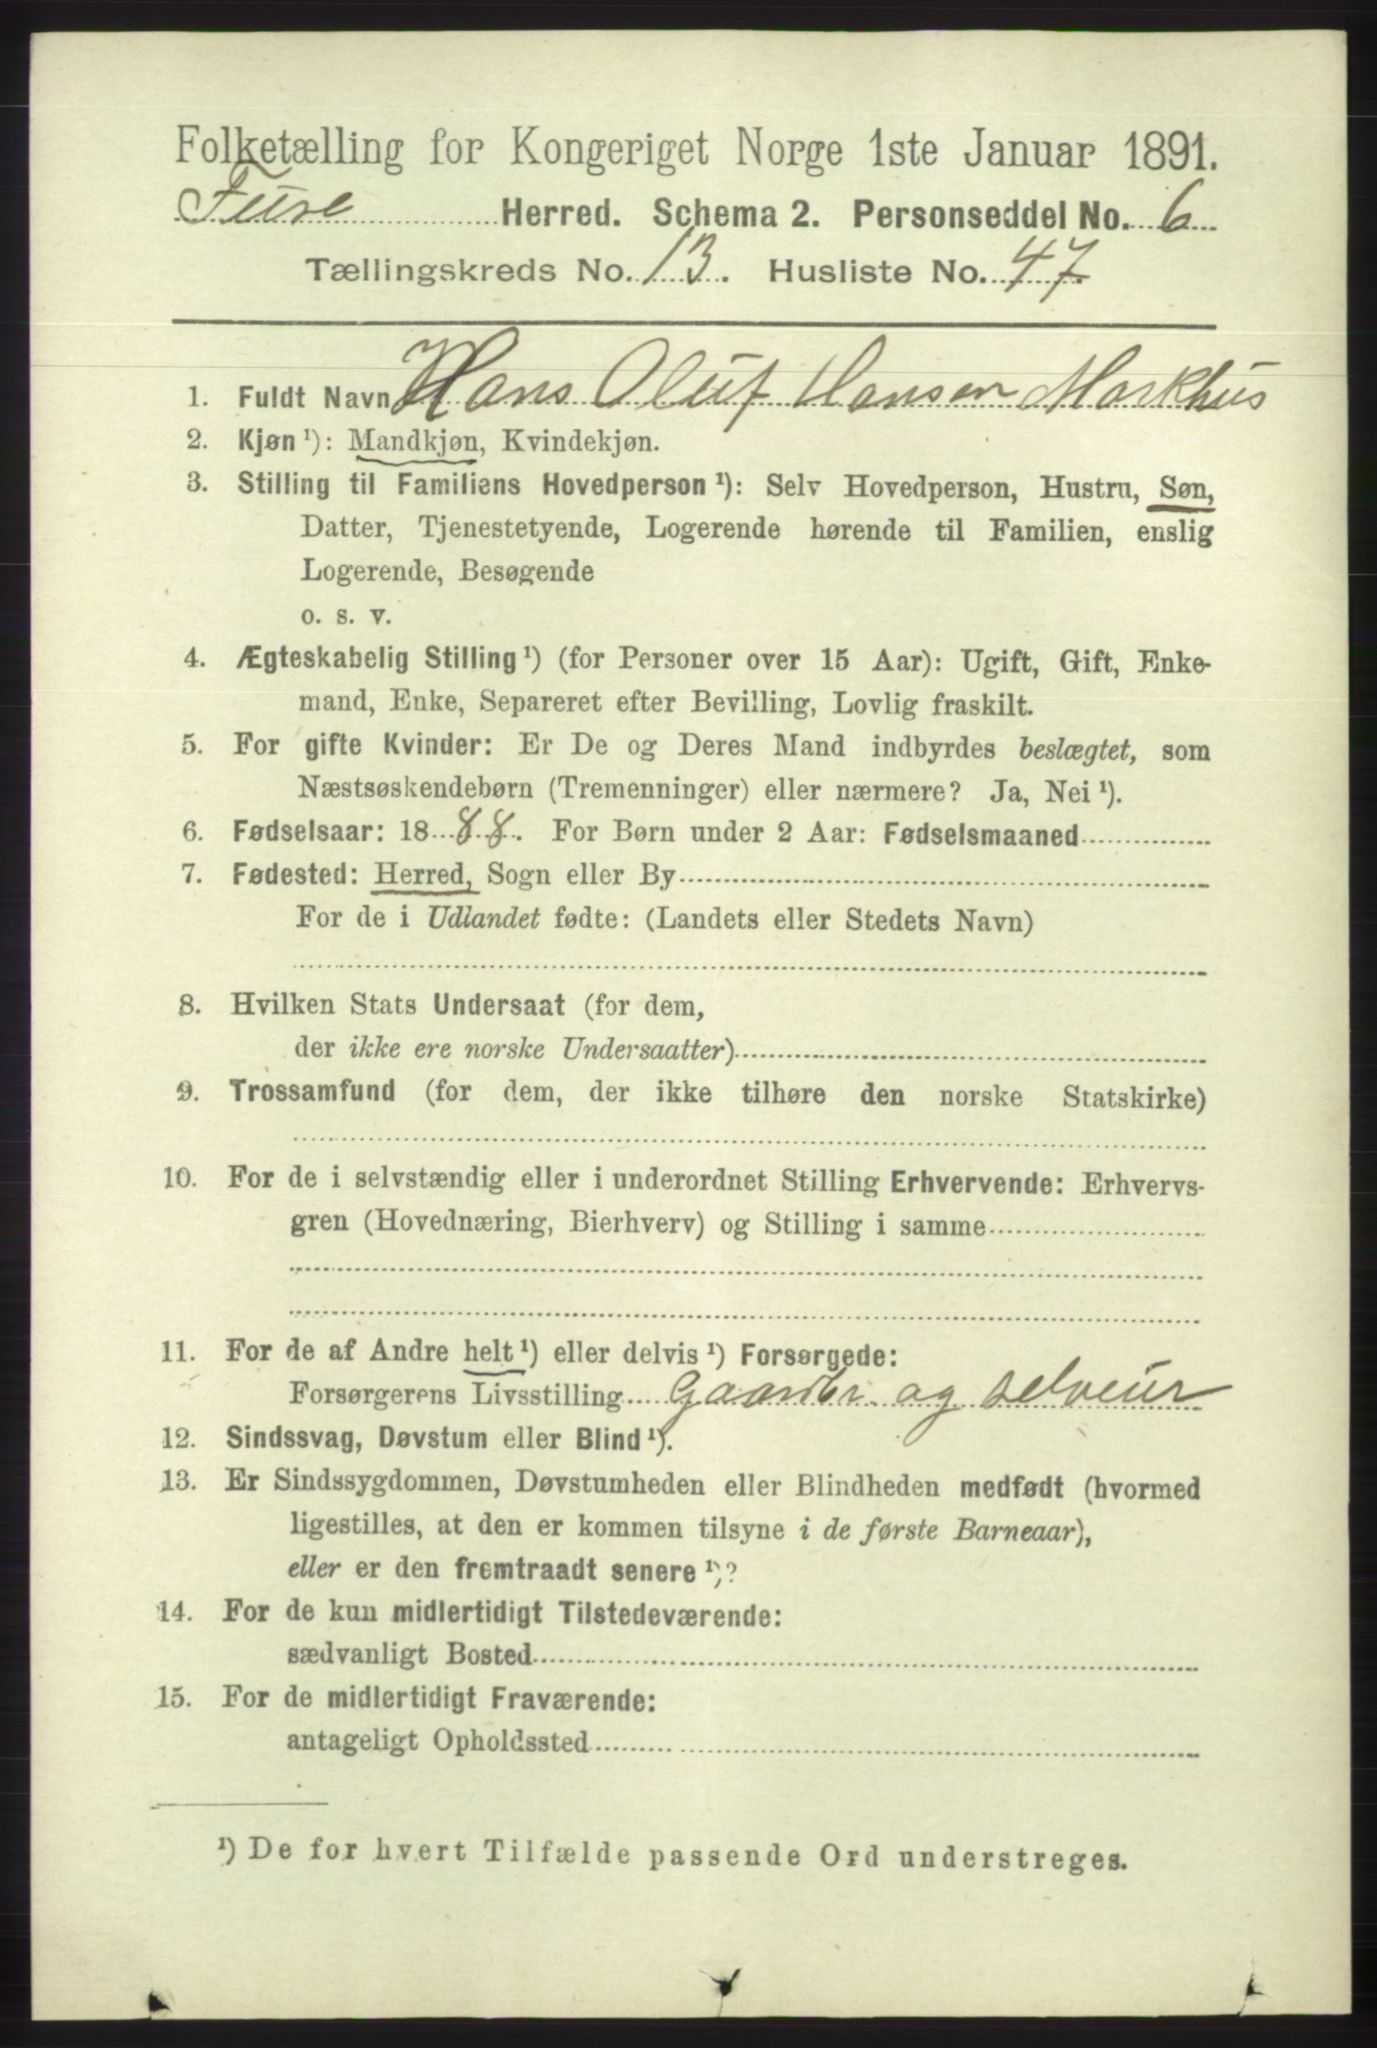 Folketælling for Kongeriget Norge 1ste Januar 1891.
Fuse Herred. Schema 2. Personseddel No. 6
Tællingskreds No. 13. Husliste No. 47.
1. Fuldt Navn Hans Oluf Hansen Markhus
2. Kjøn ¹): Mandkjøn, Kvindekjøn.
3. Stilling til Familiens Hovedperson ¹): Selv Hovedperson, Hustru, Søn,
Datter, Tjenestetyende, Logerende hørende til Familien, enslig
Logerende, Besøgende
o. s. v.
4. Ægteskabelig Stilling ¹) (for Personer over 15 Aar): Ugift, Gift, Enke-
mand, Enke, Separeret efter Bevilling, Lovlig fraskilt.
5. For gifte Kvinder: Er De og Deres Mand indbyrdes beslægtet, som
Næstsøskendebørn (Tremenninger) eller nærmere? Ja, Nei ¹).
6. Fødselsaar: 1888. For Børn under 2 Aar: Fødselsmaaned
7. Fødested: Herred, Sogn eller By
For de i Udlandet fødte: (Landets eller Stedets Navn)
8. Hvilken Stats Undersaat (for dem,
der ikke ere norske Undersaatter)
9. Trossamfund (for dem, der ikke tilhøre den norske Statskirke)
10. For de i selvstændig eller i underordnet Stilling Erhvervende: Erhvervs-
gren (Hovednæring, Bierhverv) og Stilling i samme
11. For de af Andre helt ¹) eller delvis ¹) Forsørgede:
Forsørgerens Livsstilling Gaardbr. og selveier
12. Sindssvag, Døvstum eller Blind ¹).
13. Er Sindssygdommen, Døvstumheden eller Blindheden medfødt (hvormed
ligestilles, at den er kommen tilsyne i de første Barneaar),
eller er den fremtraadt senere ¹)?
14. For de kun midlertidigt Tilstedeværende:
sædvanligt Bosted
15. For de midlertidigt Fraværende:
antageligt Opholdssted
¹) De for hvert Tilfælde passende Ord understreges.